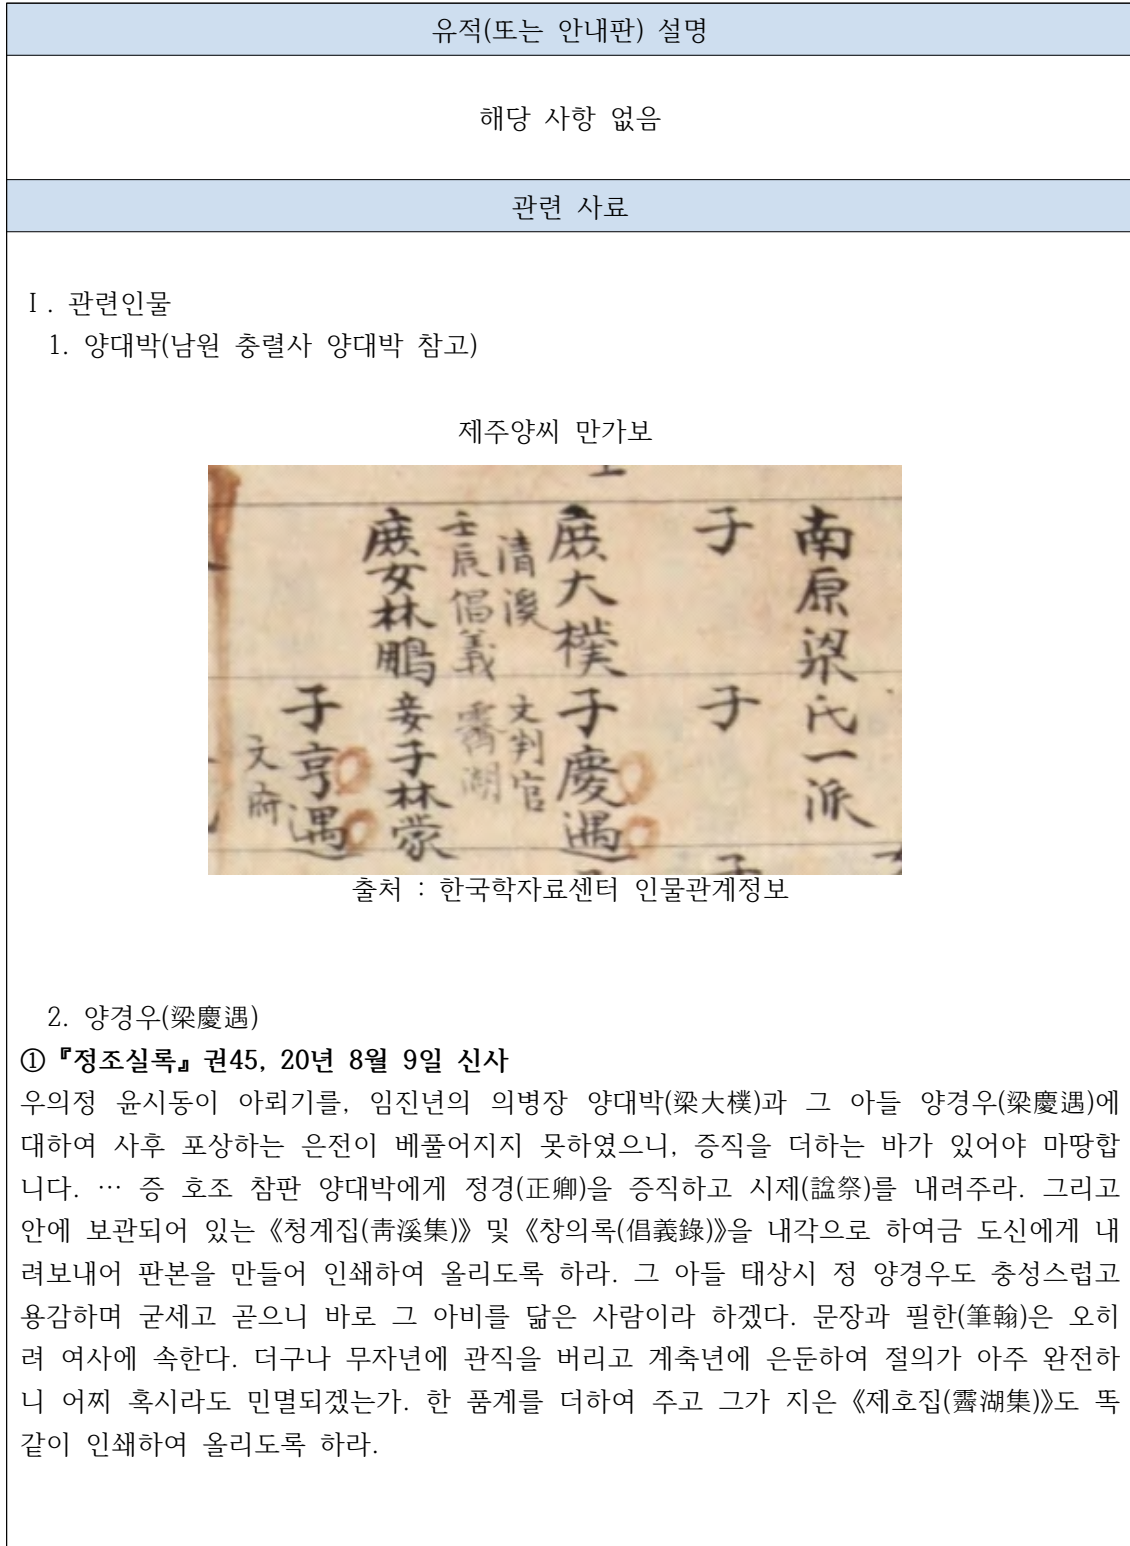 유적(또는 안내판) 설명
해당 사항 없음
관련 사료
Ⅰ. 관련인물
1. 양대박(남원 충렬사 양대박 참고)
제주양씨 만가보
南原梁氏一派
子
子
庶大樸
清溪
壬辰倡義
子慶遇
文判官
霽湖
庶女林鵬
妾子林蒙
子亨遇
文府
출처 : 한국학자료센터 인물관계정보
2. 양경우(梁慶遇)
① 『정조실록』 권45, 20년 8월 9일 신사
우의정 윤시동이 아뢰기를, 임진년의 의병장 양대박(梁大樸)과 그 아들 양경우(梁慶遇)에
대하여 사후 포상하는 은전이 베풀어지지 못하였으니, 증직을 더하는 바가 있어야 마땅합
니다. … 증 호조 참판 양대박에게 정경(正卿)을 증직하고 시제(諡祭)를 내려주라. 그리고
안에 보관되어 있는 《청계집(靑溪集)》 및 《창의록(倡義錄)》을 내각으로 하여금 도신에게 내
려보내어 판본을 만들어 인쇄하여 올리도록 하라. 그 아들 태상시 정 양경우도 충성스럽고
용감하며 굳세고 곧으니 바로 그 아비를 닮은 사람이라 하겠다. 문장과 필한(筆翰)은 오히
려 여사에 속한다. 더구나 무자년에 관직을 버리고 계축년에 은둔하여 절의가 아주 완전하
니 어찌 혹시라도 민멸되겠는가. 한 품계를 더하여 주고 그가 지은 《제호집(霽湖集)》도 똑
같이 인쇄하여 올리도록 하라.